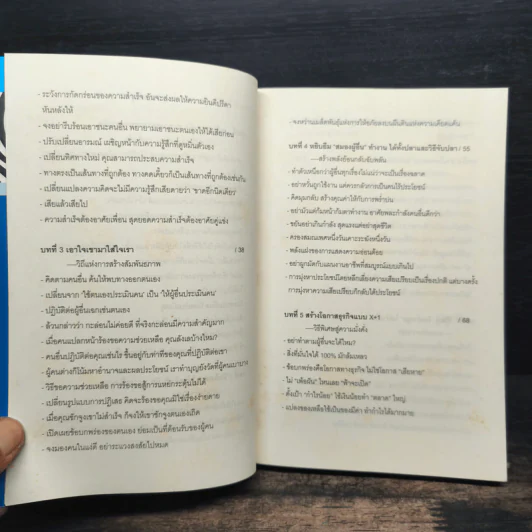 - ระวังการกัดกร่อนของความสำเร็จ อันจะส่งผลให้ความยินดีปรีดา
หันหลังให้
- จงอย่ารีบร้อนเอาชนะคนอื่น พยายามเอาชนะตนเองให้ได้เสียก่อน
- ปรับเปลี่ยนอารมณ์ เผชิญหน้ากับความรู้สึกที่ดูหมิ่นตัวเอง
- เปลี่ยนทิศทางใหม่ คุณสามารถประสบความสำเร็จ
- ทางตรงเป็นเส้นทางที่ถูกต้อง ทางคดเคี้ยวก็เป็นเส้นทางที่ถูกต้องเช่นกัน
- เปลี่ยนแปลงความคิดจะไม่มีความรู้สึกเสียดายว่า 'ขาดอีกนิดเดียว'
- เสียแล้วเสียไป
- ความสำเร็จต้องอาศัยเพื่อน สุดยอดความสำเร็จต้องอาศัยคู่แข่ง
บทที่ 3 เอาใจเขามาใส่ใจเรา / 38
—วิถีแห่งการสร้างสัมพันธภาพ
- คิดตามคนอื่น ค้นให้พบทางออกตนเอง
- เปลี่ยนจาก 'ใช้ตนเองประเมินคน' เป็น 'ให้ผู้อื่นประเมินคน'
- ปฏิบัติต่อผู้อื่นเฉกเช่นตนเอง
- ล้วนกล่าวว่า กะล่อนไม่ค่อยดี ที่จริงกะล่อนมีความสำคัญมาก
- เมื่อคนแปลกหน้าร้องขอความช่วยเหลือ คุณลังเลบ้างไหม?
- คนอื่นปฏิบัติต่อคุณเช่นไร ขึ้นอยู่กับท่าทีของคุณที่ปฏิบัติต่อเขา
- ผู้คนต่างก็โน้มหาอำนาจและผลประโยชน์ เราทำบุญยังหวังที่ผู้คนเบาบาง
- วิธีขอความช่วยเหลือ การร้องขอสู้การแหย่กระตุ้นไม่ได้
- เปลี่ยนรูปแบบการปฏิเสธ คิดจะร้องขอคุณมิใช่เรื่องง่ายดาย
- เมื่อคุณชักจูงเขาไม่สำเร็จ ก็จงให้เขาชักจูงตนเองเถิด
- เปิดเผยข้อบกพร่องของตนเอง ย่อมเป็นที่ต้อนรับของผู้คน
- จงมองคนในแง่ดี อย่าระแวงสงสัยไปหมด
- จงหว่านเมล็ดพันธุ์แห่งการให้อภัยลงบนผืนดินแห่งความเคียดแค้น
บทที่ 4 หยิบยืม "สมองผู้อื่น" ทำงาน ได้ทั้งปลาและวิธีจับปลา / 55
—สร้างพลังย้อนกลับอันพลัน
- คำตัวเหนือกว่าผู้อื่นทุกเรื่องไม่แน่ว่าจะเป็นเรื่องฉลาด
- อย่าหวั่นถูกใช้งาน แต่ควรกลัวการเป็นคนไร้ประโยชน์
- คิดมุมกลับ สร้างคุณค่าให้กับการพร่ำบ่น
- อย่ามัวแต่ก้มหน้าก้มตาทำงาน อาศัยพละกำลังคนอื่นดีกว่า
- ขยันอย่าเกินกำลัง สุดแรงแต่อย่าสุดชีวิต
- ครองสมณเพศหนึ่งวันเคาะระฆังหนึ่งวัน
- พลังแฝงของการแสดงความอ่อนด้อย
- อย่าผูกมัดกับแผนงานอาชีพที่สมบูรณ์แบบเกินไป
- การมุ่งหาประโยชน์โดยหลีกเลี่ยงความเสียเปรียบเป็นเรื่องปกติ แต่บางครั้ง
การมุ่งหาความเสียเปรียบก็กลับได้ประโยชน์
บทที่ 5 สร้างโอกาสธุรกิจแบบ X+1 / 69
—วิธีพิเศษสู่ความมั่งคั่ง
- อย่าทำตามผู้อื่นจะได้ไหม?
- สิ่งที่มั่นใจได้ 100% มักล้มเหลว
- ข้อบกพร่องคือโอกาสทางธุรกิจ ไม่ใช่โอกาส "เสียหาย"
- ไม่ "เพ้อฝัน" ไหนเลย "ฟ้าจะเปิด"
- ตั้งเป้า "กำไรน้อย" ใช้เงินน้อยทำ "ตลาด" ใหญ่
- แปลงของเหลือใช้เป็นของมีค่า ทำกำไรได้มากมาย